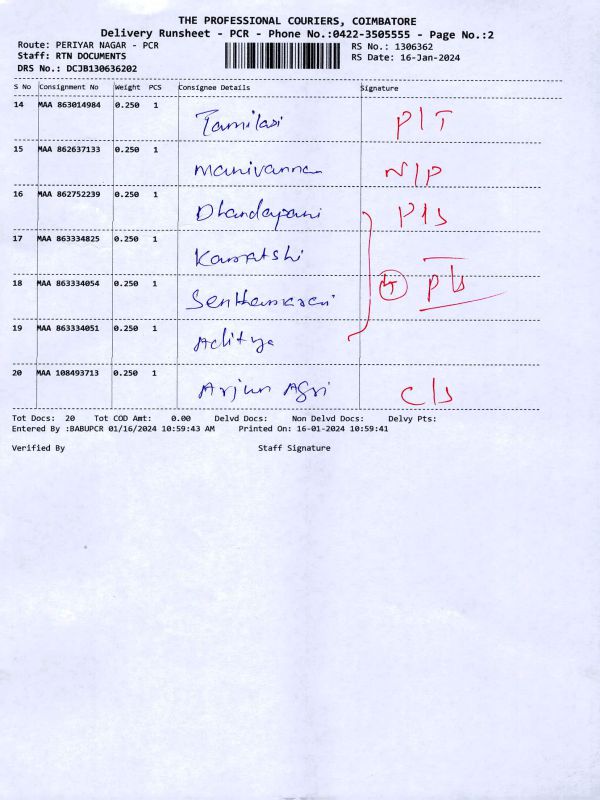 THE PROFESSIONAL COURIERS, COIMBATORE
Delivery Runsheet - PCR - Phone No.:0422-3505555 - Page No.:2
Route: PERIYAR NAGAR - PCR RS No.: 1306362
Staff: RTN DOCUMENTS RS Date: 16-Jan-2024
DRS No.: DCJB130636202
S No Consignment No Weight PCS Consignee Details Signature
14 MAA 863014984 0.250 1 Tamilasi P/T
15 MAA 862637133 0.250 1 Manivannan N/P
16 MAA 862752239 0.250 1 Dhandapani P/S
17 MAA 863334825 0.250 1 Kamatshi
18 MAA 863334054 0.250 1 P/S
19 MAA 863334051 0.250 1 Aditya
20 MAA 108493713 0.250 1 Arjun Agri C/S
Tot Docs: 20 Tot COD Amt: 0.00 Delvd Docs: Non Delvd Docs: Delvy Pts:
Entered By :BABUPCR 01/16/2024 10:59:43 AM Printed On: 16-01-2024 10:59:41
Verified By Staff Signature